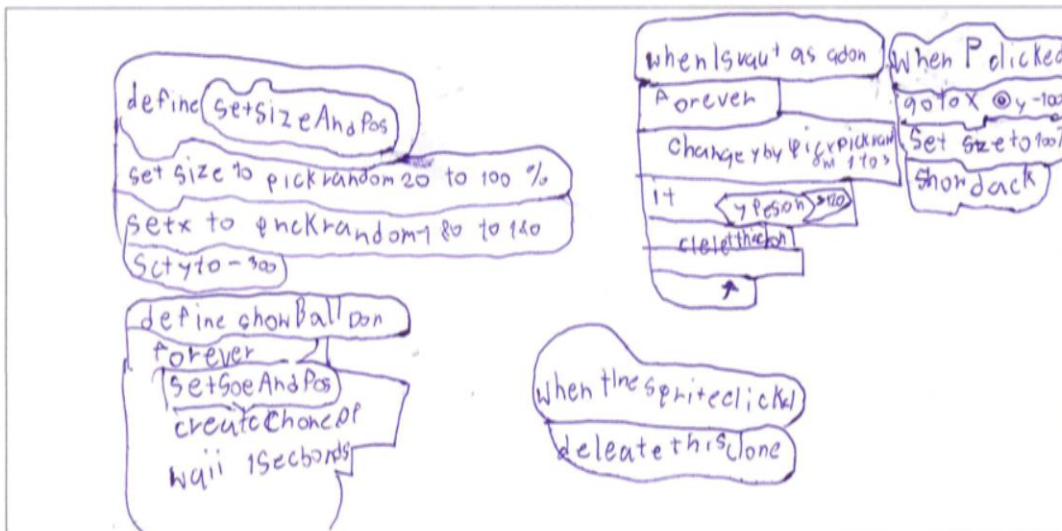 define setSizeAndPos
set size to pickrandom 20 to 100 %
setx to pnckrandom-180 to 180
Sctyto-300
define showBalloon
forever
SetSoeAndPos
create Chone of
waii 1Secbonds
when Isvaut as adon
Forever
Change y by pickrandom 1 to 3
it y Peson >120
cleletthiclon
When P clicked
go to x 0 y -100
Set size to 100%
Show dack
When tIne spriteclickd
deleate this clone